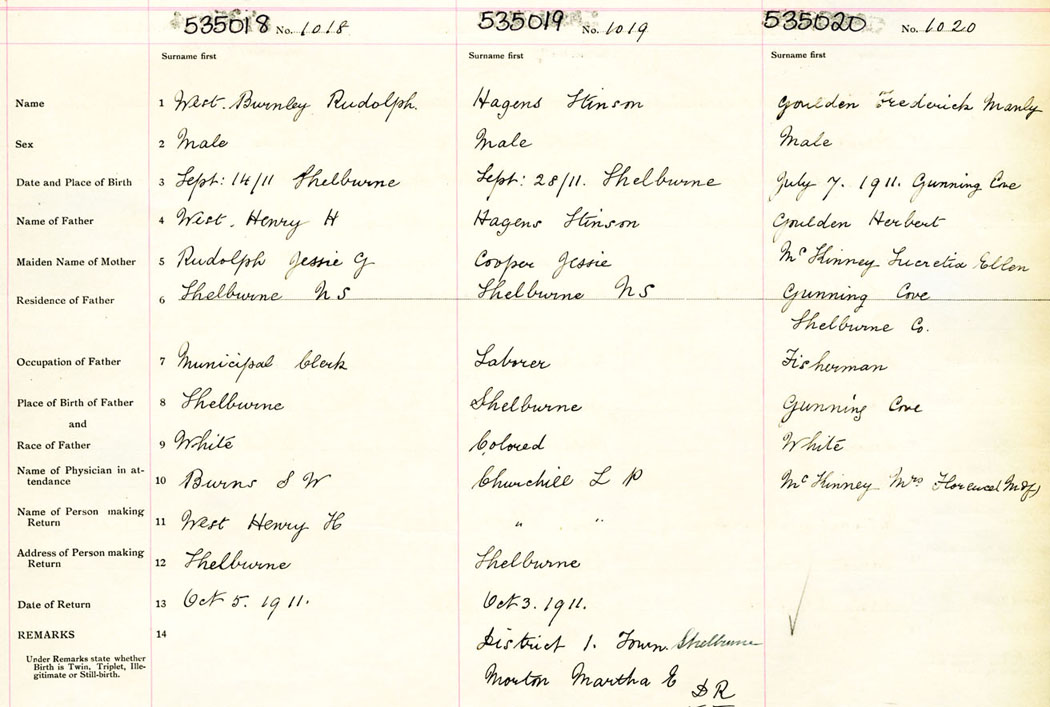 535018 No. 1018 535019 No. 1019 535020 No. 1020
Surname first Surname first Surname first
Name 1 West. Burnley Rudolph. Hagens Stinson Goulden Frederick Manly
Sex 2 Male Male Male
Date and Place of Birth 3 Sept: 14/11 Shelburne Sept: 28/11. Shelburne July 7. 1911. Gunning Cove
Name of Father 4 West. Henry H Hagens Stinson Goulden Herbert
Maiden Name of Mother 5 Rudolph Jessie G Cooper Jessie McKinney Lucretia Ellen
Residence of Father 6 Shelburne NS Shelburne NS Gunning Cove
Shelburne Co.
Occupation of Father 7 Municipal Clerk Laborer Fisherman
Place of Birth of Father 8 Shelburne Shelburne Gunning Cove
and
Race of Father 9 White Colored White
Name of Physician in at-
tendance 10 Burns S W Churchill L P McKinney Mrs Florence
Name of Person making
Return 11 West Henry H " "
Address of Person making
Return 12 Shelburne Shelburne
Date of Return 13 Oct 5. 1911. Oct 3. 1911.
REMARKS 14 District 1. Town Shelburne
Under Remarks state whether
Birth is Twin, Triplet, Ille-
gitimate or Still-birth.
Morton Martha E DR